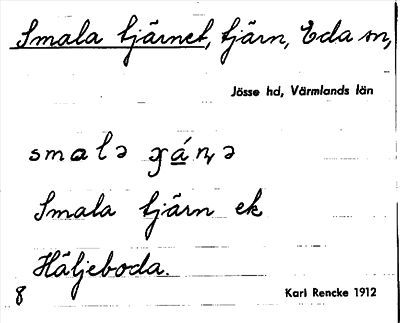 Smala tjärnet, tjärn, Eda sn,
Jösse hd, Värmlands län
smalə
Smala tjärn ek
Häljeboda.
8
Karl Rencke 1912